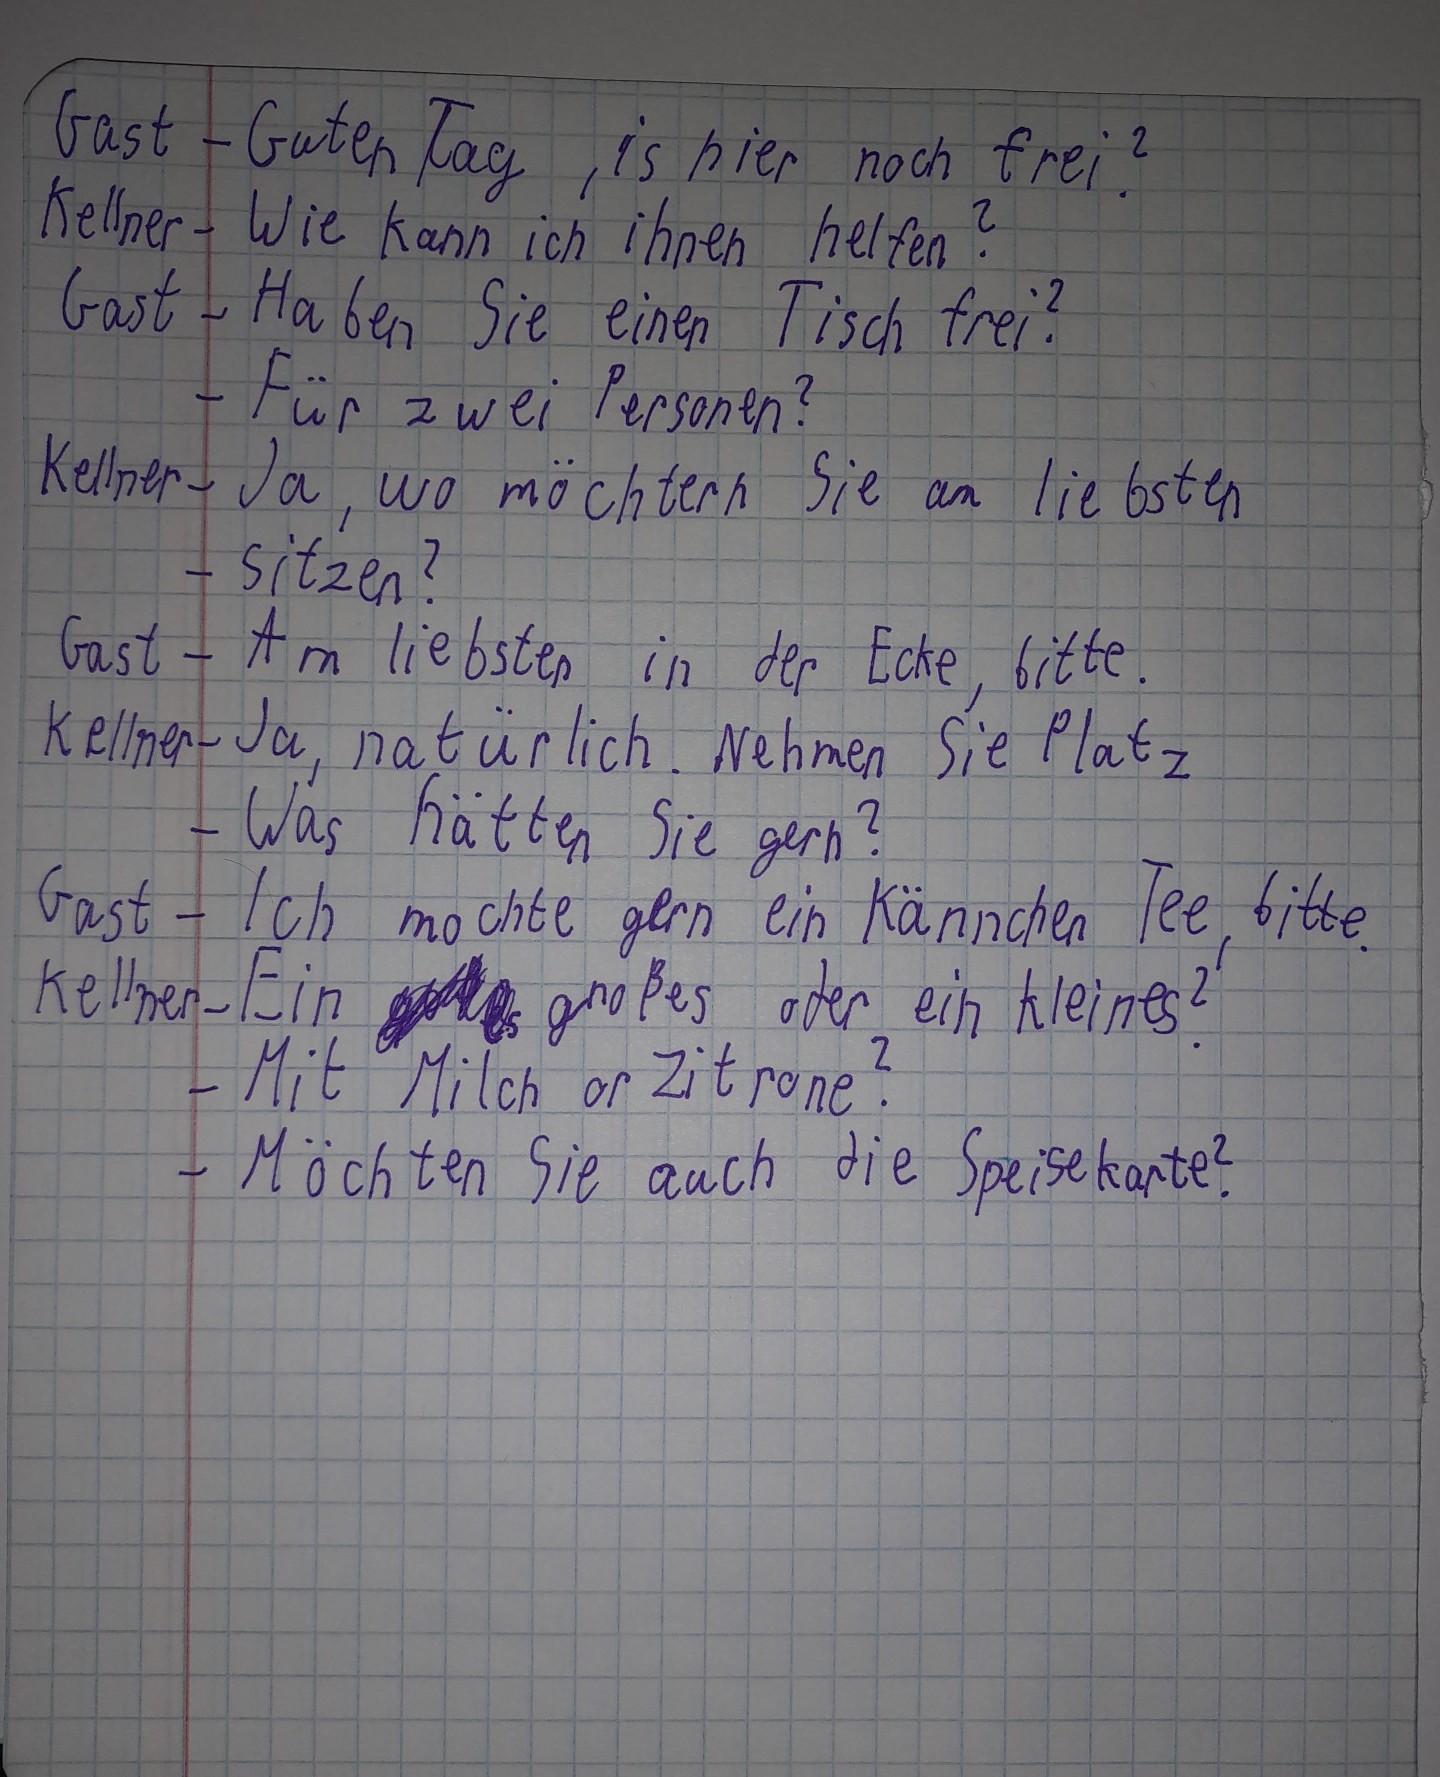 Gast - Guten Tag, is hier noch frei?
Kellner - Wie kann ich ihnen helfen?
Gast - Haben Sie einen Tisch frei?
- Für zwei Personen?
Kellner - Ja, wo möchtern Sie am liebsten
- sitzen?
Gast - Am liebsten in der Ecke, bitte.
Kellner - Ja, natürlich. Nehmen Sie Platz
- Was hätten Sie gern?
Gast - Ich mochte gern ein Kännchen Tee, bitte.
Kellner - Ein großes oder ein kleines?
- Mit Milch or Zitrone?
- Möchten Sie auch die Speisekarte?